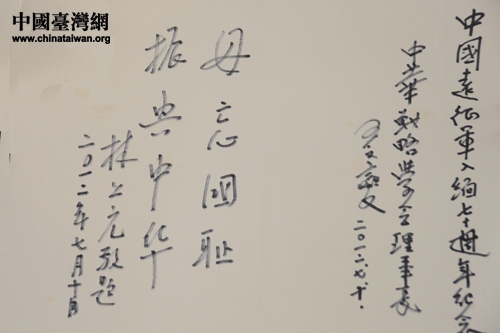 中國臺灣網
www.chinataiwan.org
中國遠征軍入緬七十週年紀念
中華戰略學會理事長
二〇一二、七、十、
毋忘國恥
振興中華
林上元敬題
二〇一二年七月十日